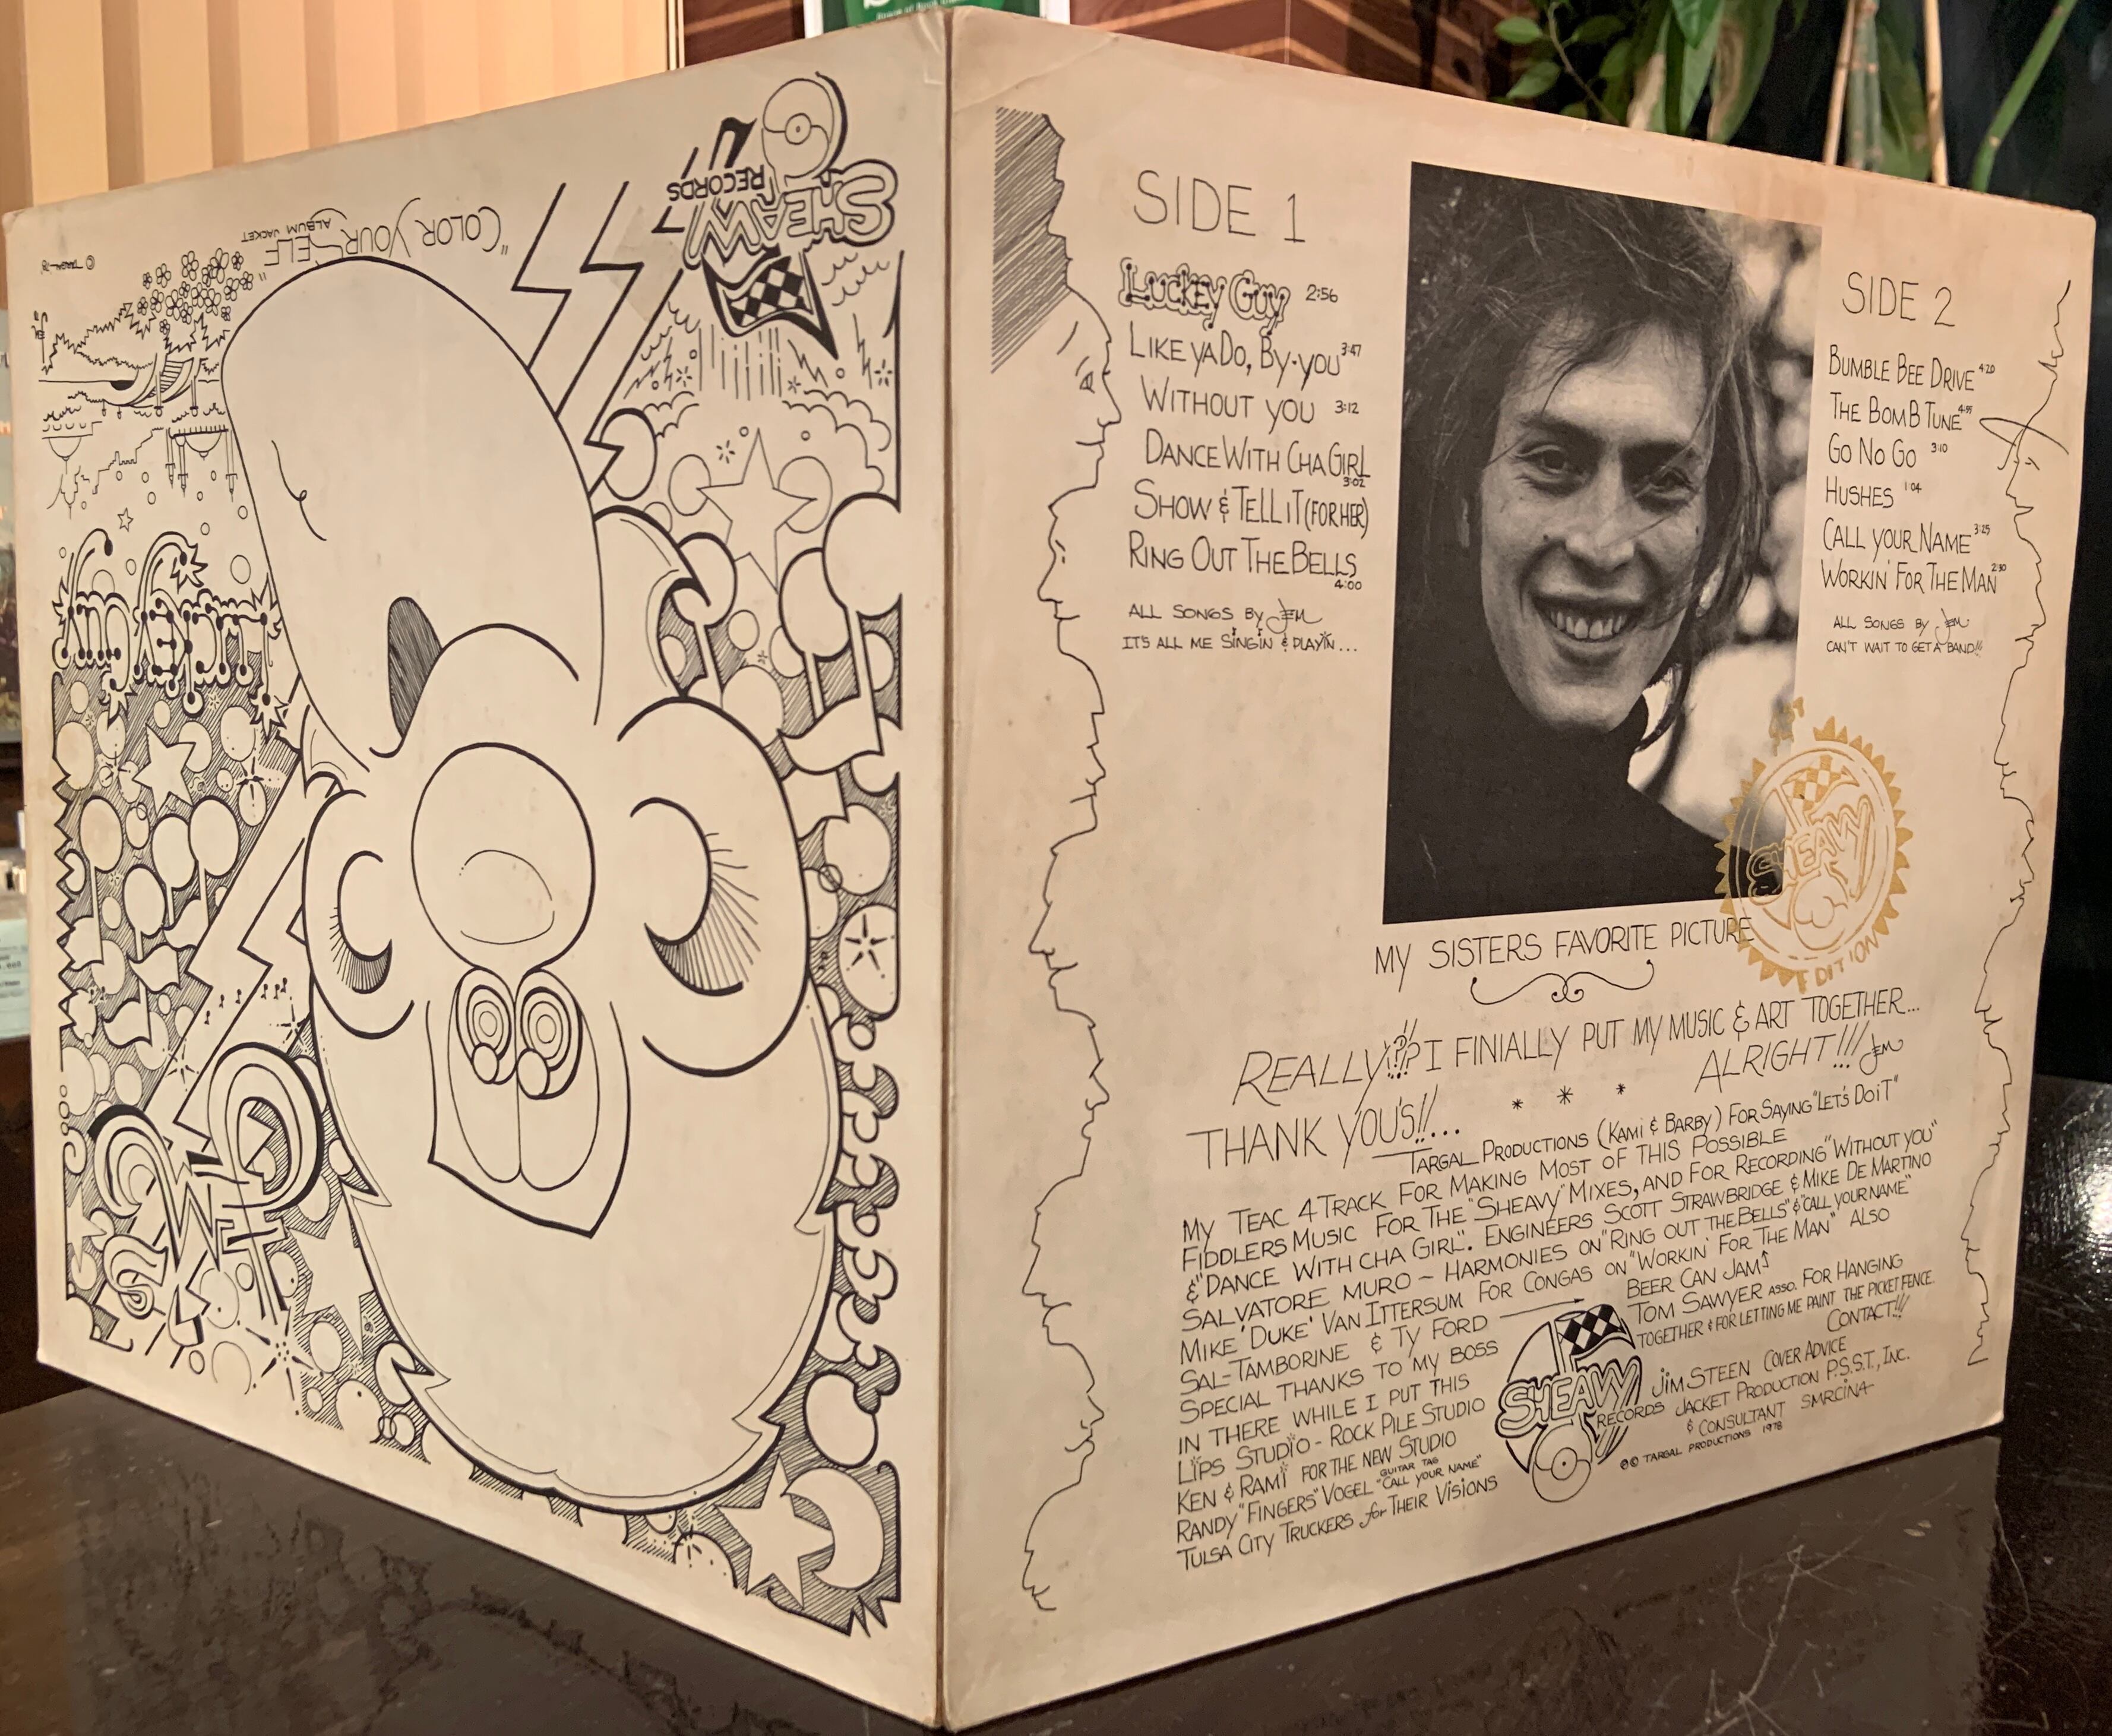 "COLOR YOURSELF"
ALBUM JACKET
© TARGAL-78
SHEAVY
RECORDS
JEM
TARGAL
LUCKEY GUY
SIDE 1
LUCKEY GUY 2:56
LIKE YA DO, BY-YOU 3:47
WITHOUT YOU 3:12
DANCE WITH CHA GIRL 3:02
SHOW & TELL IT (FOR HER)
RING OUT THE BELLS 4:00
ALL SONGS BY JEM
IT'S ALL ME SINGIN & PLAYIN...
SIDE 2
BUMBLE BEE DRIVE 4:20
THE BOMB TUNE 4:55
GO NO GO 3:10
HUSHES 1:04
CALL YOUR NAME 3:25
WORKIN' FOR THE MAN 2:30
ALL SONGS BY JEM
CAN'T WAIT TO GET A BAND!!
1ST
SHEAVY
EDITION
MY SISTERS FAVORITE PICTURE
REALLY!?!? I FINIALLY PUT MY MUSIC & ART TOGETHER...
ALRIGHT!!! JEM
* * *
THANK YOU'S!!...
TARGAL PRODUCTIONS (KAMI & BARBY) FOR SAYING "LET'S DO IT"
MY TEAC 4 TRACK FOR MAKING MOST OF THIS POSSIBLE
FIDDLERS MUSIC FOR THE "SHEAVY" MIXES, AND FOR RECORDING "WITHOUT YOU"
& "DANCE WITH CHA GIRL". ENGINEERS SCOTT STRAWBRIDGE & MIKE DE MARTINO
SALVATORE MURO ~ HARMONIES ON "RING OUT THE BELLS" & "CALL YOUR NAME"
MIKE 'DUKE' VAN ITTERSUM FOR CONGAS ON "WORKIN' FOR THE MAN" ALSO
SAL-TAMBORINE & TY FORD → BEER CAN JAM
SPECIAL THANKS TO MY BOSS TOM SAWYER ASSO. FOR HANGING
IN THERE WHILE I PUT THIS TOGETHER & FOR LETTING ME PAINT THE PICKET FENCE.
LIPS STUDIO - ROCK PILE STUDIO CONTACT!!!
KEN & RAMI FOR THE NEW STUDIO
RANDY "FINGERS" VOGEL GUITAR TAG "CALL YOUR NAME"
TULSA CITY TRUCKERS for THEIR VISIONS
SHEAVY
RECORDS
JIM STEEN COVER ADVICE
JACKET PRODUCTION P.S.S.T., INC.
& CONSULTANT SMRCINA
℗© TARGAL PRODUCTIONS 1978